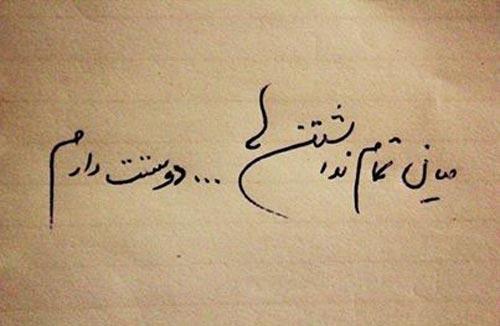 میانِ تمام نداشتن ها ... دوستت دارم